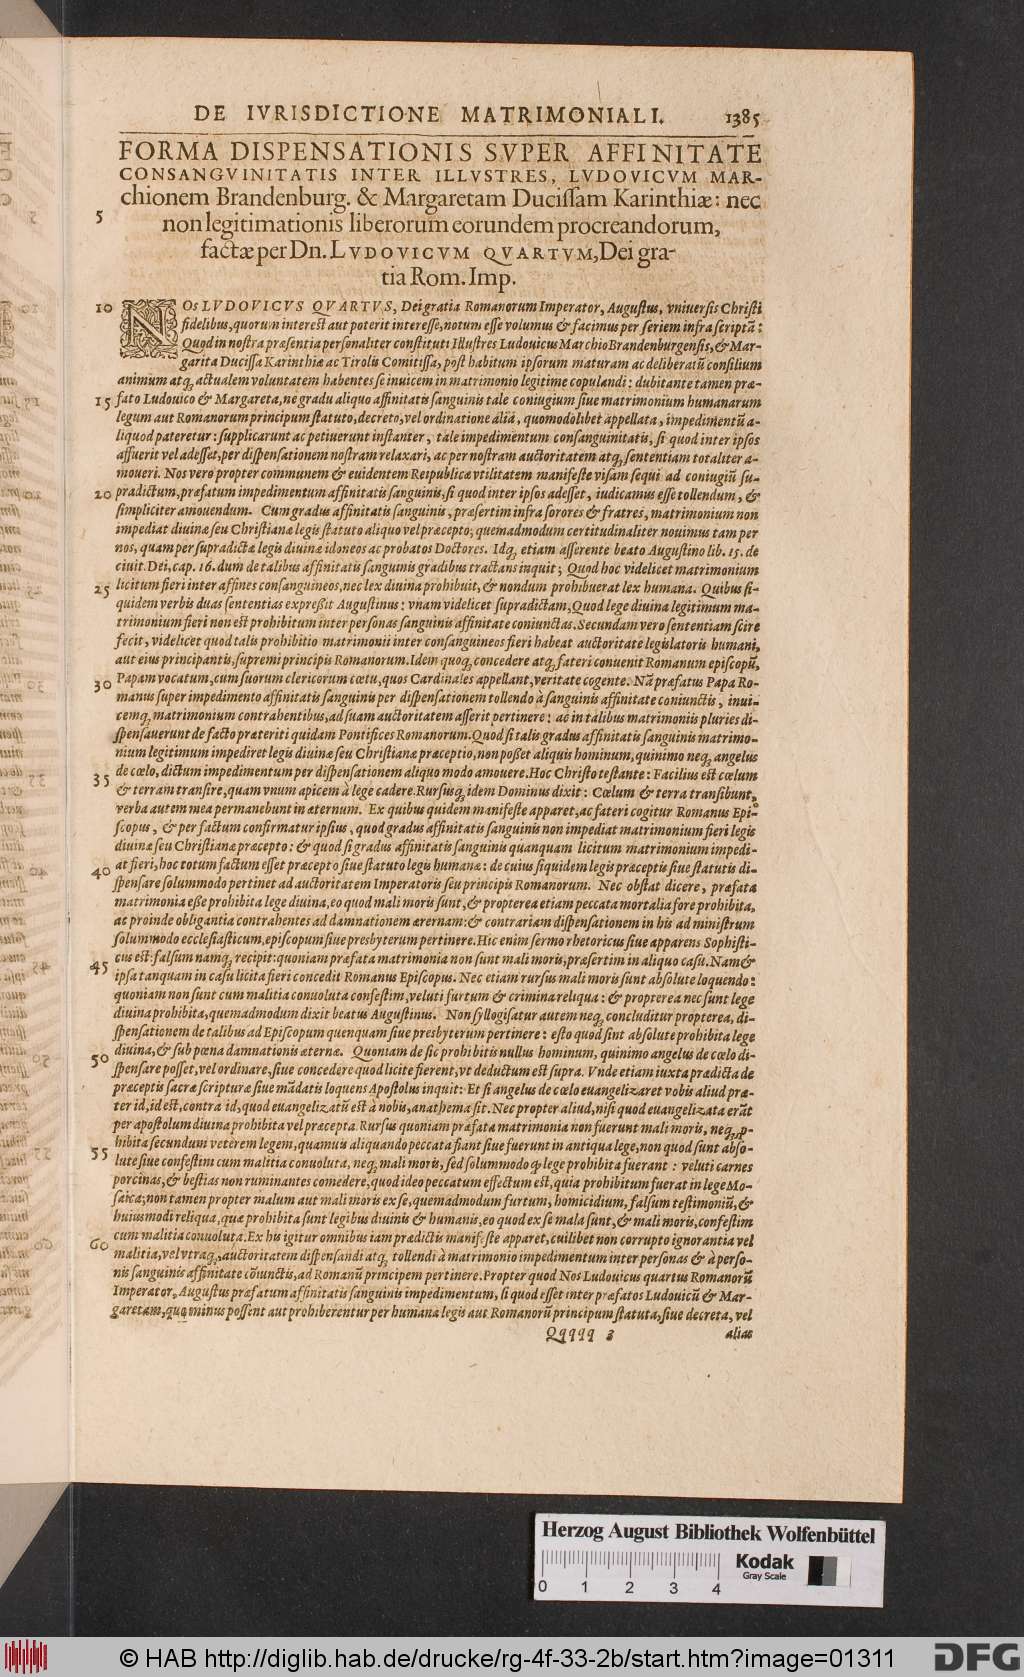 DE IVRISDICTIONE MATRIMONIALI. 1385
FORMA DISPENSATIONIS SVPER AFFINITATE
CONSANGVINITATIS INTER ILLVSTRES, LVDOVICVM MAR-
chionem Brandenburg. & Margaretam Ducissam Karinthiæ: nec
5 non legitimationis liberorum eorundem procreandorum,
factæ per Dn. LVDOVICVM QVARTVM, Dei gra-
tia Rom. Imp.
10 NOs LVDOVICVS QVARTVS, Dei gratia Romanorum Imperator, Augustus, vniuersis Christi
fidelibus, quorum interest aut poterit interesse, notum esse volumus & facimus per seriem infra scriptā:
Quod in nostra præsentia personaliter constituti Illustres Ludouicus Marchio Brandenburgensis, & Mar-
garita Ducissa Karinthiæ ac Tirolis Comitissa, post habitum ipsorum maturam ac deliberatū consilium
animum atq; actualem voluntatem habentes se inuicem in matrimonio legitime copulandi: dubitante tamen præ-
15 fato Ludouico & Margareta, ne gradu aliquo affinitatis sanguinis tale coniugium siue matrimonium humanarum
legum aut Romanorum principum statuto, decreto, vel ordinatione aliâ, quomodolibet appellata, impedimentū a-
liquod pateretur: supplicarunt ac petiuerunt instanter, tale impedimentum consanguinitatis, si quod inter ipsos
affuerit vel adesset, per dispensationem nostram relaxari, ac per nostram auctoritatem atq; sententiam totaliter a-
moueri. Nos vero propter communem & euidentem Reipublicæ vtilitatem manifeste visam sequi ad coniugiū su-
20 pradictum, præfatum impedimentum affinitatis sanguinis, si quod inter ipsos adesset, iudicamus esse tollendum, &
simpliciter amouendum. Cum gradus affinitatis sanguinis, præsertim infra sorores & fratres, matrimonium non
impediat diuinæ seu Christianæ legis statuto aliquo vel præcepto; quemadmodum certitudinaliter nouimus tam per
nos, quam per supradictæ legis diuinæ idoneos ac probatos Doctores. Idq; etiam asserente beato Augustino lib. 15. de
ciuit. Dei, cap. 16. dum de talibus affinitatis sanguinis gradibus tractans inquit; Quod hoc videlicet matrimonium
25 licitum fieri inter affines consanguineos, nec lex diuina prohibuit, & nondum prohibuerat lex humana. Quibus si-
quidem verbis duas sententias expreßit Augustinus: vnam videlicet supradictam, Quod lege diuina legitimum ma-
trimonium fieri non est prohibitum inter personas sanguinis affinitate coniunctas. Secundam vero sententiam scire
fecit, videlicet quod talis prohibitio matrimonii inter consanguineos fieri habeat auctoritate legislatoris humani,
aut eius principantis, supremi principis Romanorum. Idem quoq; concedere atq; fateri conuenit Romanum episcopū,
30 Papam vocatum, cum suorum clericorum cœtu, quos Cardinales appellant, veritate cogente. Nā præfatus Papa Ro-
manus super impedimento affinitatis sanguinis per dispensationem tollendo à sanguinis affinitate coniunctis, inui-
cemq; matrimonium contrahentibus, ad suam auctoritatem asserit pertinere: ac in talibus matrimoniis pluries di-
spensauerunt de facto præteriti quidam Pontifices Romanorum. Quod si talis gradus affinitatis sanguinis matrimo-
nium legitimum impediret legis diuinæ seu Christianæ præceptio, non poßet aliquis hominum, quinimo neq; angelus
35 de cœlo, dictum impedimentum per dispensationem aliquo modo amouere. Hoc Christo testante: Facilius est cœlum
& terram transire, quam vnum apicem à lege cadere. Rursusq; idem Dominus dixit: Cœlum & terra transibunt,
verba autem mea permanebunt in æternum. Ex quibus quidem manifeste apparet, ac fateri cogitur Romanus Epi-
scopus, & per factum confirmatur ipsius, quod gradus affinitatis sanguinis non impediat matrimonium fieri legis
diuinæ seu Christianæ præcepto: & quod si gradus affinitatis sanguinis quanquam licitum matrimonium impedi-
40 at fieri, hoc totum factum esset præcepto siue statuto legis humanæ: de cuius siquidem legis præceptis siue statutis di-
spensare solummodo pertinet ad auctoritatem Imperatoris seu principis Romanorum. Nec obstat dicere, præfata
matrimonia eße prohibita lege diuina, eo quod mali moris sunt, & propterea etiam peccata mortalia fore prohibita,
ac proinde obligantia contrahentes ad damnationem æternam: & contrariam dispensationem in his ad ministrum
solummodo ecclesiasticum, episcopum siue presbyterum pertinere. Hic enim sermo rhetoricus siue apparens Sophisti-
45 cus est: falsum namq; recipit: quoniam præfata matrimonia non sunt mali moris, præsertim in aliquo casu. Nam &
ipsa tanquam in casu licita fieri concedit Romanus Episcopus. Nec etiam rursus mali moris sunt absolute loquendo:
quoniam non sunt cum malitia conuoluta confestim, veluti furtum & crimina reliqua: & propterea nec sunt lege
diuina prohibita, quemadmodum dixit beatus Augustinus. Non syllogisatur autem neq; concluditur propterea, di-
spensationem de talibus ad Episcopum quenquam siue presbyterum pertinere: esto quod sint absolute prohibita lege
50 diuina, & sub pœna damnationis æternæ. Quoniam de sic prohibitis nullus hominum, quinimo angelus de cœlo di-
spensare posset, vel ordinare, siue concedere quod licite fierent, vt deductum est supra. Vnde etiam iuxta prædicta de
præceptis sacræ scripturæ siue mādatis loquens Apostolus inquit: Et si angelus de cœlo euangelizaret vobis aliud præ-
ter id, id est, contra id, quod euangelizatū est à nobis, anathema sit. Nec propter aliud, nisi quod euangelizata erāt
per apostolum diuina prohibita vel præcepta. Rursus quoniam præfata matrimonia non fuerunt mali moris, neq; p-
55 hibita secundum veterem legem, quamuis aliquando peccata fiant siue fuerunt in antiqua lege, non quod sunt abso-
lute siue confestim cum malitia conuoluta, neq; mali moris, sed solummodo q; lege prohibita fuerant: veluti carnes
porcinas, & bestias non ruminantes comedere, quod ideo peccatum effectum est, quia prohibitum fuerat in lege Mo-
saica; non tamen propter malum aut mali moris ex se, quemadmodum furtum, homicidium, falsum testimoniū, &
huiusmodi reliqua, quæ prohibita sunt legibus diuinis & humanis, eo quod ex se mala sunt, & mali moris, confestim
60 cum malitia conuoluta. Ex his igitur omnibus iam prædictis manifeste apparet, cuilibet non corrupto ignorantia vel
malitia, vel vtraq;, auctoritatem dispensandi atq; tollendi à matrimonio impedimentum inter personas & à perso-
nis sanguinis affinitate cōiunctis, ad Romanū principem pertinere. Propter quod Nos Ludouicus quartus Romanorū
Imperator, Augustus præfatum affinitatis sanguinis impedimentum, si quod esset inter præfatos Ludouicū & Mar-
garetam, quo minus possent aut prohiberentur per humana legis aut Romanorū principum statuta, siue decreta, vel
Qqqqq 3 alias
Herzog August Bibliothek Wolfenbüttel
Kodak
Gray Scale
0 1 2 3 4
© HAB http://diglib.hab.de/drucke/rg-4f-33-2b/start.htm?image=01311
DFG